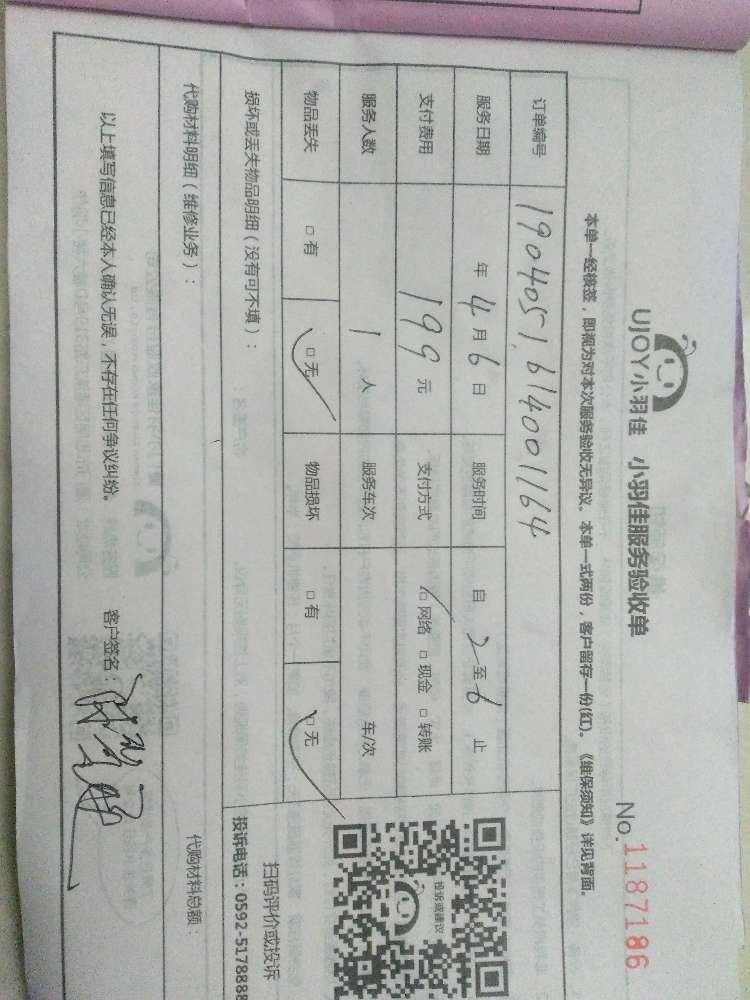 UJOY小羽佳 小羽佳服务验收单
No. 1187186
本单一经核签，即视为对本次服务验收无异议。本单一式两份，客户留存一份(红)。《维保须知》详见背面。
订单编号 1904051614001164
服务日期 年 4 月 6 日 服务时间 自 2 至 6 止
支付费用 199 元 支付方式 □ 网络 □ 现金 □ 转账
服务人数 1 人 服务车次 车/次
物品丢失 □ 有 □ 无 物品损坏 □ 有 □ 无
损坏或丢失物品明细（没有可不填）：
投诉或建议
扫码评价或投诉
投诉电话：0592-5178888
代购材料明细（维修业务）：
代购材料总额：
以上填写信息已经本人确认无误，不存在任何争议纠纷。 客户签名：